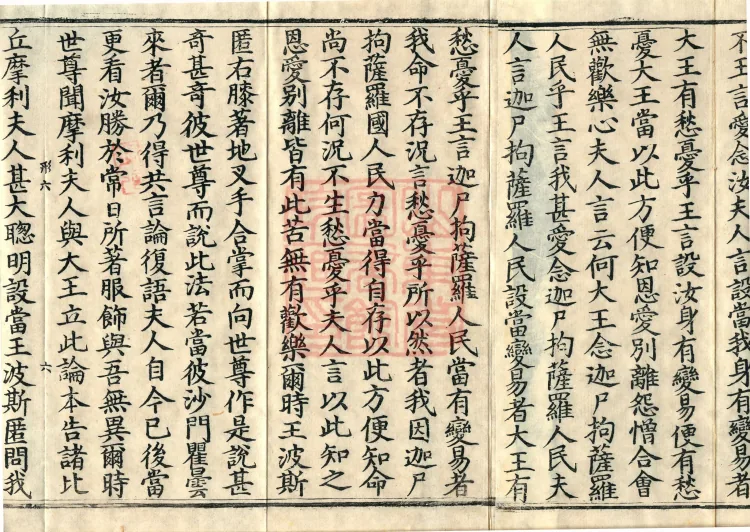 不王言愛念汝夫人言設當我身有變易者
大王有愁憂乎王言設汝身有變易便有愁
憂大王當以此方便知恩愛別離怨憎合會
無歡樂心夫人言云何大王念迦尸拘薩羅
人民乎王言我甚愛念迦尸拘薩羅人民夫
人言迦尸拘薩羅人民設當變易者大王有
愁憂乎王言迦尸拘薩羅人民當有變易者
我命不存況言愁憂乎所以然者我因迦尸
拘薩羅國人民力當得自存以此方便知命
尚不存何況不生愁憂乎夫人言以此知之
恩愛別離皆有此苦無有歡樂爾時王波斯
匿右膝著地叉手合掌而向世尊作是說甚
奇甚奇彼世尊而說此法若當彼沙門瞿曇
來者爾乃得共言論復語夫人自今已後當
更看汝勝於常日所著服飾與吾無異爾時
世尊聞摩利夫人與大王立此論本告諸比
形六 六
丘摩利夫人甚大聰明設當王波斯匿問我